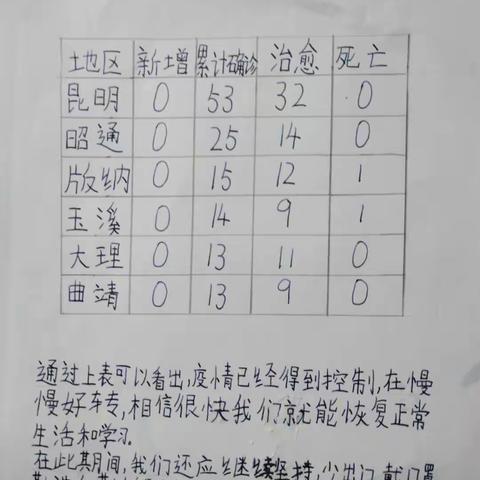 地区 新增 累计确诊 治愈 死亡
昆明 0 53 32 0
昭通 0 25 14 0
版纳 0 15 12 1
玉溪 0 14 9 1
大理 0 13 11 0
曲靖 0 13 9 0
通过上表可以看出,疫情已经得到控制,在慢
慢好转,相信很快我们就能恢复正常
生活和学习.
在此期间,我们还应继续坚持,少出门,戴口罩